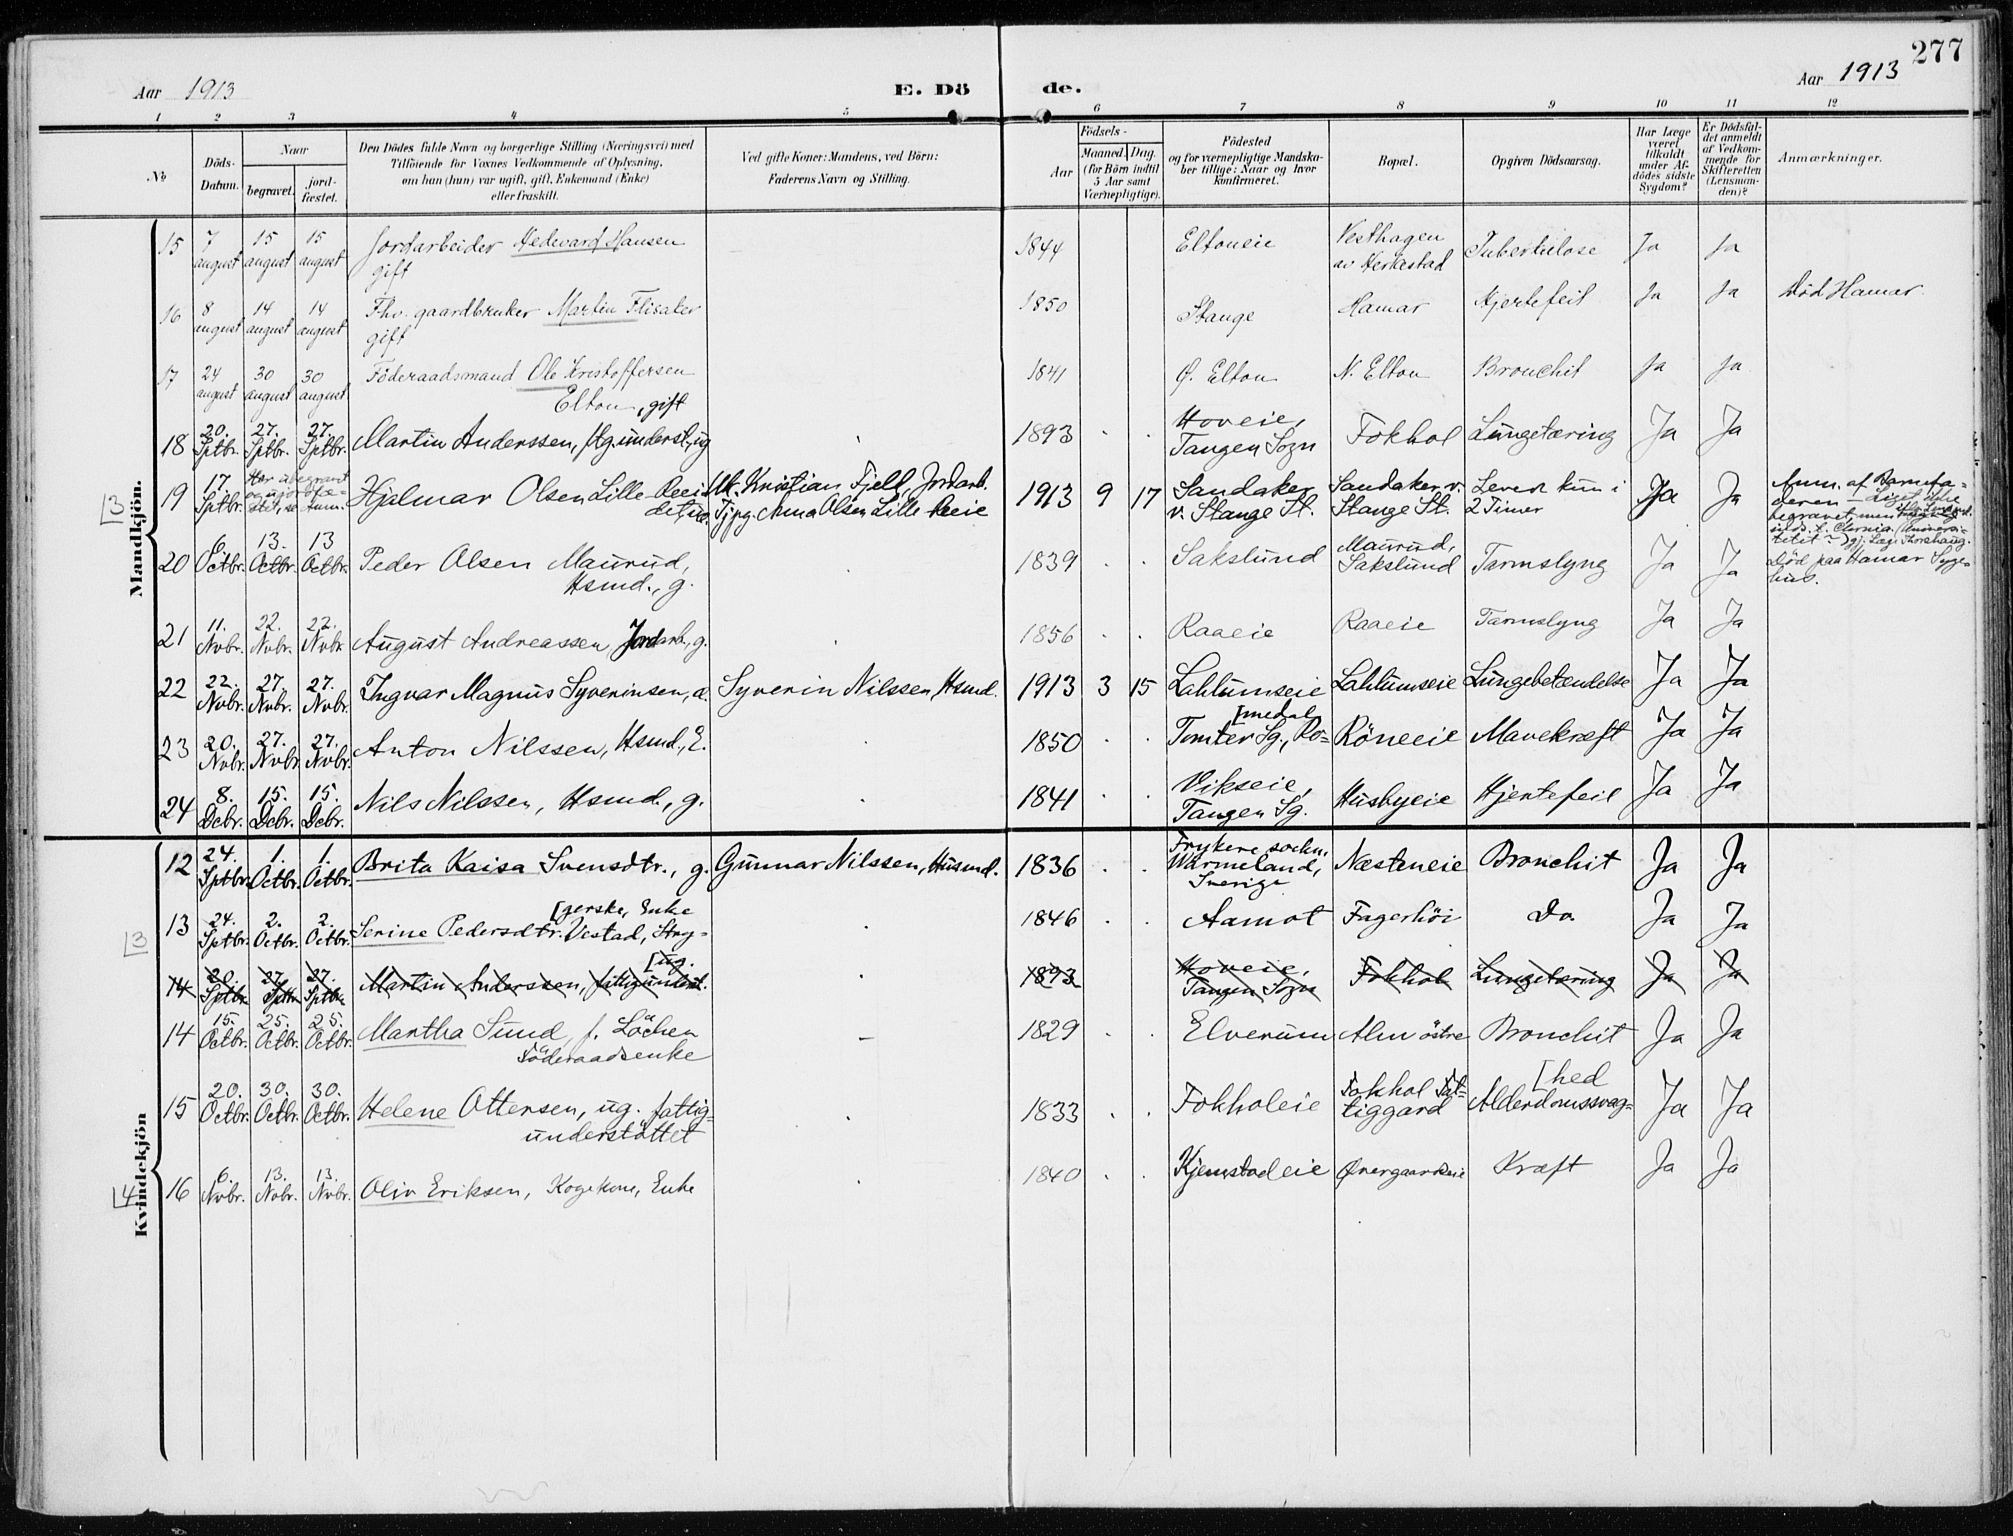 277
Aar 1913 E. Dö de. Aar 1913
1 2 3 4 5 6 7 8 9 10 11 12
No
Döds-
Datum.
Naar
begravet.
jord-
fæstet.
Den Dödes fulde Navn og borgerlige Stilling (Næringsvei) med
Tilföiende for Voxnes Vedkommende af Oplysning,
om han (hun) var ugift, gift, Enkemand (Enke)
eller fraskilt.
Ved gifte Koner: Mandens, ved Börn:
Faderens Navn og Stilling.
Födsels-
Aar
Maaned. Dag.
(for Börn indtil
5 Aar samt
Værnepligtige).
Födested
og for værnepligtige Mandska-
ber tillige: Naar og hvor
konfirmeret.
Bopæl.
Opgiven Dödsaarsag.
Har Læge
været
tilkaldt
under Af-
dödes sidste
Sygdom?
Er Dödsfal-
det anmeldt
af Vedkom-
mende for
Skifteretten
(Lensman-
den)?
Anmærkninger.
Mandkjön.
15 7 august 15 august 15 august Jordarbeider Hedevard Hansen gift 1844 Eltoneie Vesthagen av Herkestad Tuberkulose Ja Ja
16 8 august 14 august 14 august Fhv. gaardbruker Martin Flisaker gift 1850 Stange Hamar Hjertefeil Ja Ja Död Hamar
17 24 august 30 august 30 august Föderaadsmand Ole Kristoffersen Elton, gift 1841 Ø. Elton N. Elton Bronchit Ja Ja
18 20. Sptbr. 27. Sptbr. 27. Sptbr. Martin Anderssen, ftg.underst., ug 1893 Hoveie, Tangen Sogn Fokhol Lungetæring Ja Ja
3
19 17. Sptbr. Hjalmar Olsen Lille Reei Uk. Kristian Fjell, Jordarb. Tjpg. Anna Olsen Lille Reeie 1913 9 17 Sandaker v. Stange St. Sandaker v. Stange St. Levet kun i 2 Timer Ja Ja Anm. af Barnefa-
deren
20 6. Octbr. 13. Octbr. 13 Octbr. Peder Olsen Maurud, Hsmd., g. 1839 Sakslund Maurud, Sakslund Tarmslyng Ja Ja Död paa Hamar Syge-
hus.
21 11. Nvbr. 22. Nvbr. 22. Nvbr. August Andreassen, Jordarb., g. 1856 Raaeie Raaeie Tarmslyng Ja Ja
22 22. Nvbr. 27. Nvbr. 27. Nvbr. Ingvar Magnus Syverinsen, æ. Syverin Nilssen, Hsmd. 1913 3 15 Lahlumseie Lahlumseie Lungebetændelse Ja Ja
23 20. Nvbr. 27. Nvbr. 27. Nvbr. Anton Nilssen, Hsmd., E. 1850 Tomter Sg., Ro-
[medal Röneeie Mavekræft Ja Ja
24 8. Dcbr. 15. Dcbr. 15. Dcbr. Nils Nilssen, Hsmd., g. 1841 Vikseie, Tangen Sg. Husbyeie Hjertefeil Ja Ja
Kvindekjön
12 24. Sptbr. 1. Octbr. 1. Octbr. Brita Kaisa Svensdtr., g. Gunnar Nilssen, Husmd. 1836 Frykere sockn, Wärmeland, Sverige Næsteneie Bronchit Ja Ja
3
13 24. Sptbr. 2. Octbr. 2. Octbr. Serine Pedersdtr. Vestad, Stry-
[gerske, Enke 1846 Aamot Fagerhöi Do. Ja Ja
14 20. Sptbr. 27. Sptbr. 27. Sptbr. Martin Anderssen, fattigunderst. [ug. 1893 Hoveie, Tangen Sogn Fokhol Lungetæring Ja Ja
14 15. Octbr. 25. Octbr. 25. Octbr. Martha Sund, f. Löchen Föderaadsenke 1829 Elverum Alm östre Bronchit Ja Ja
15 20. Octbr. 30. Octbr. 30. Octbr. Helene Ottersen, ug. fattig-
understöttet 1833 Fokholeie Fokhol Fat-
tiggard Alderdomssvag-
[hed Ja Ja
4
16 6. Nvbr. 13. Nvbr. 13. Nvbr. Oliv Eriksen, Kogekone, Enke 1840 Kjemstadeie Övergaardseie Kræft Ja Ja